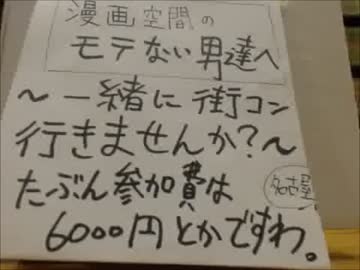 漫画空間の
モテない男達へ
～一緒に街コン
行きませんか？～
たぶん参加費は
名古屋
6000円とかですわ。